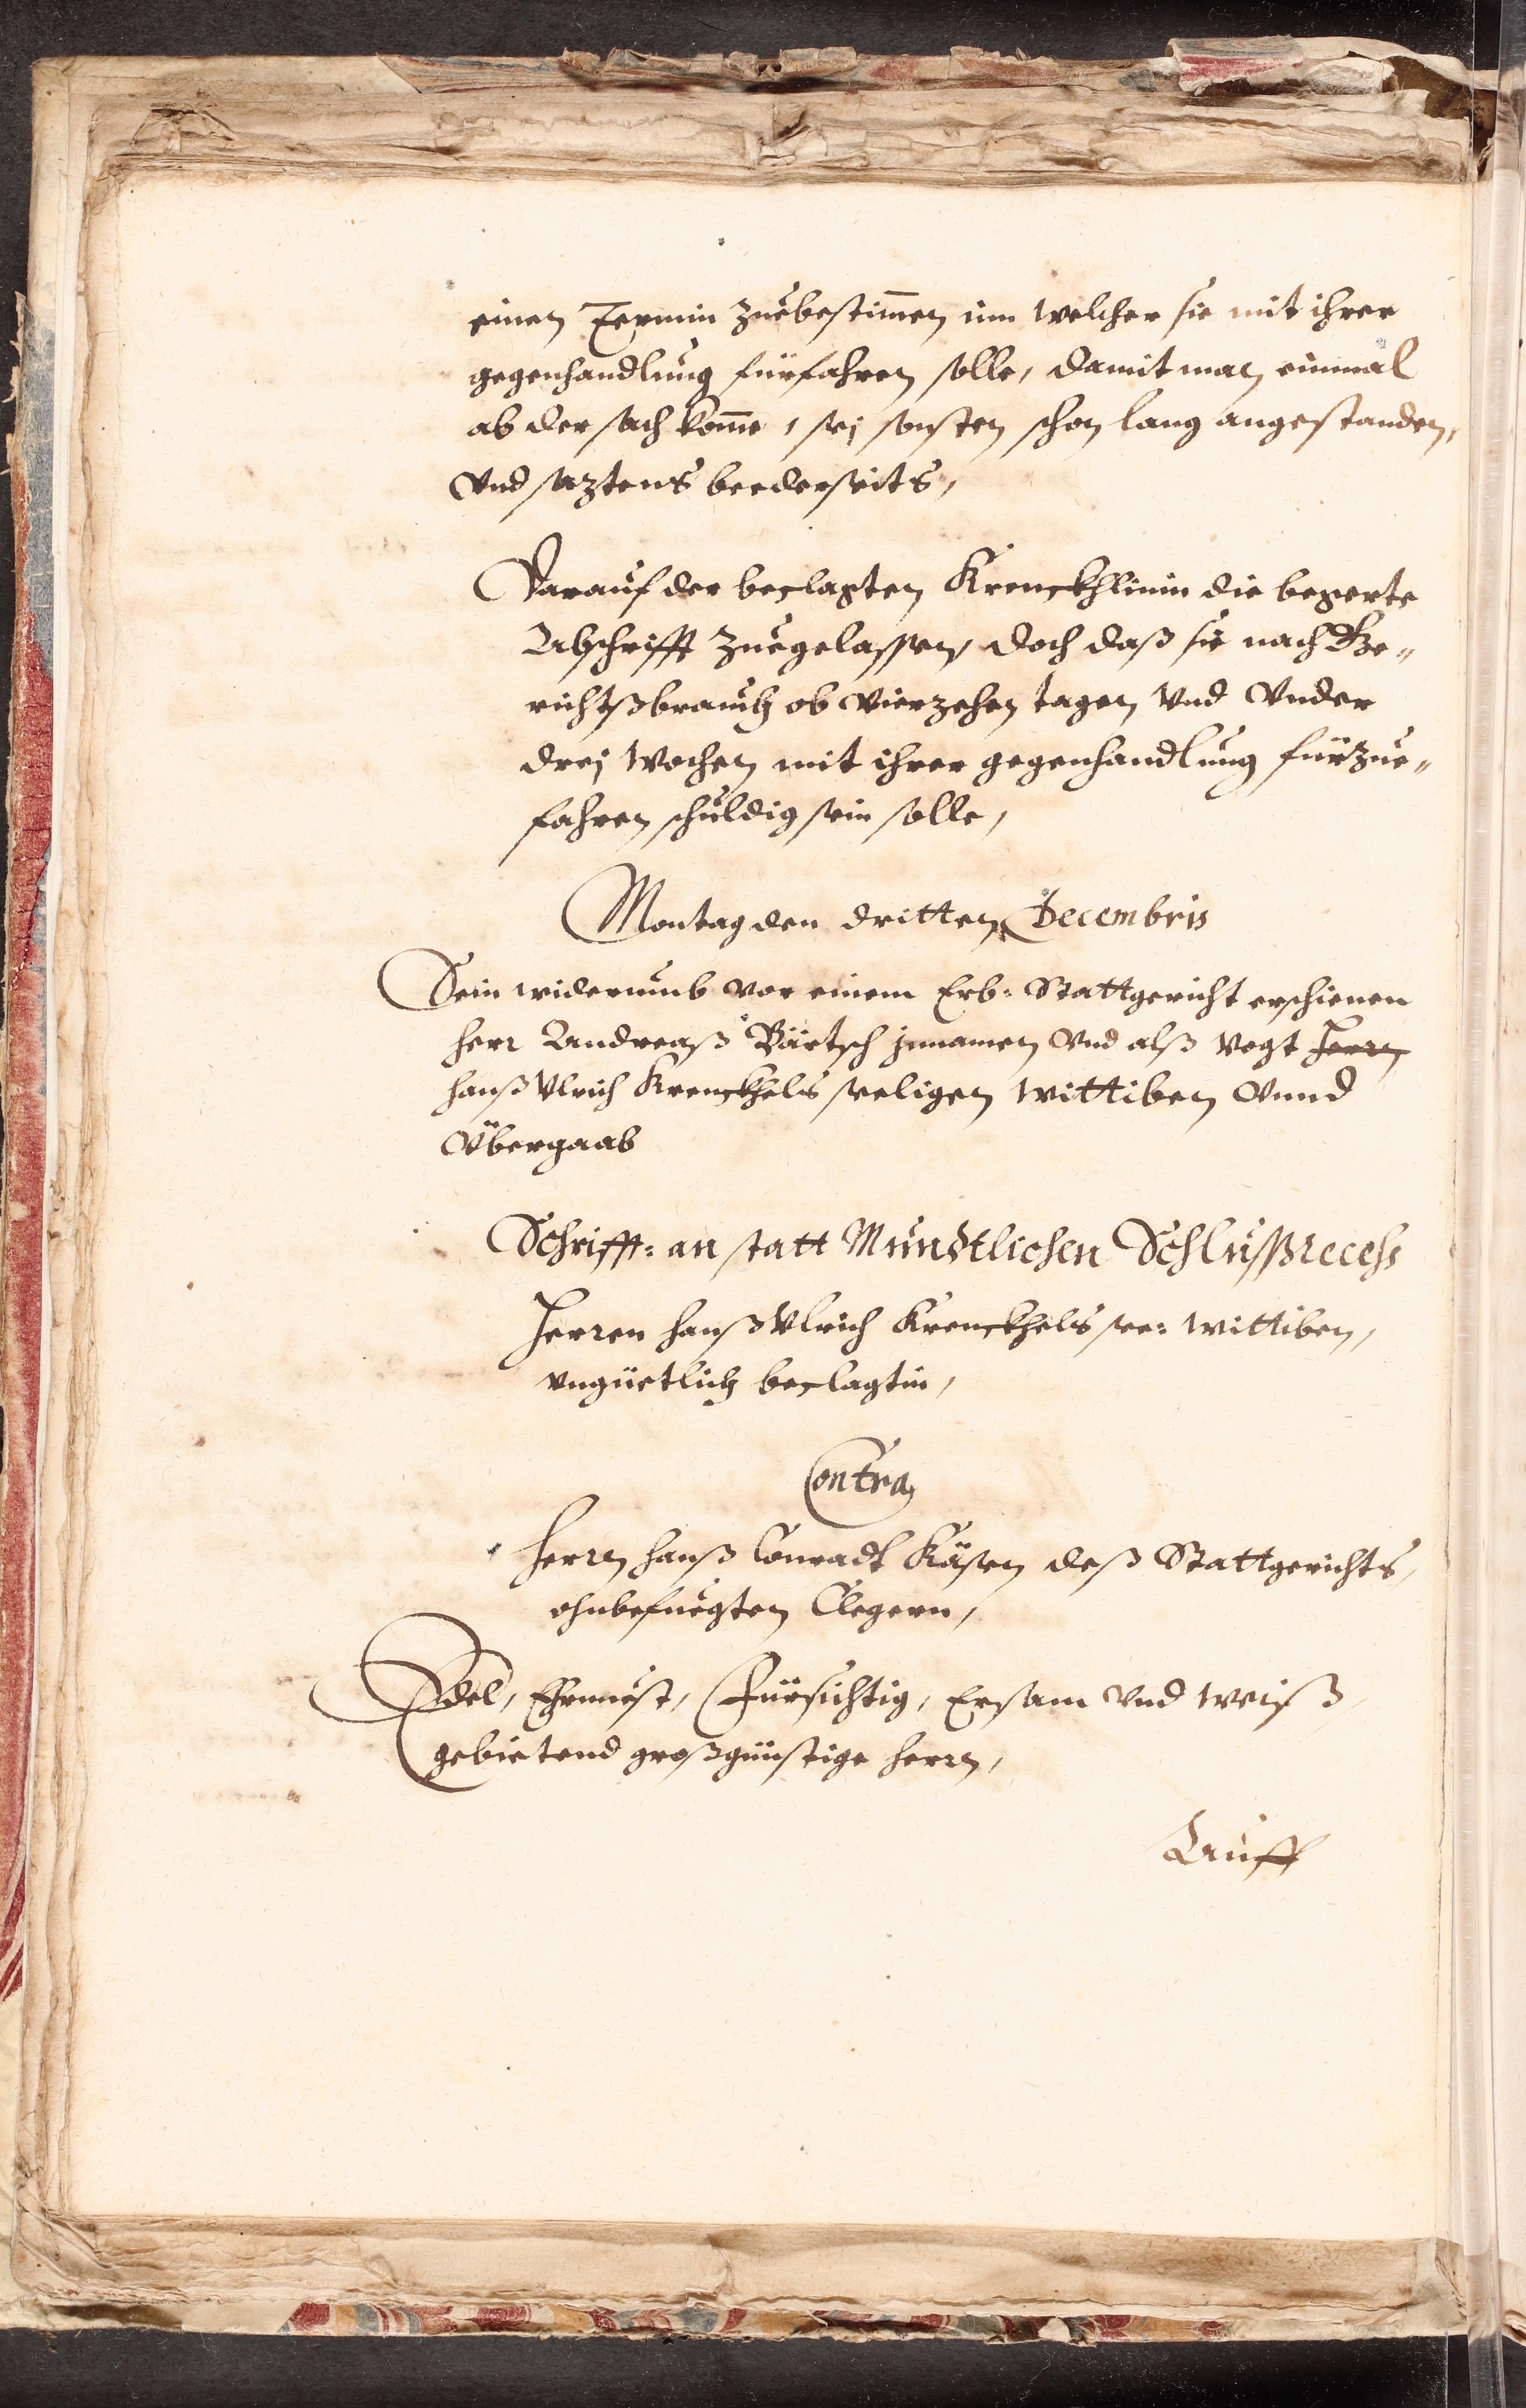 einen Termin zuebestim̄en inn welcher sie mit ihrer
gegenhandlung fürfahren solle, damit man einmal
ab der sach kom̄e, sej sonsten schon lang angestanden,
vnd saztens beederseits,
Darauf der beclagten Krenckhlinin die begerte
Abschrifft zuegelassen, doch daß sie nach Ge„
richtßbrauch ob vierzehen tagen vnd vnder
drej wochen mit ihrer gegenhandlung fürzue„
fahren schuldig sein solle,
Montag den dritten Decembris
Sein widerumb vor einem Erb: Stattgericht erschienen
herr Andreaß Bärtsch jnnamen vnd alß Vogt Herrn
hanß Vlrich Krenckhels seeligen wittiben vnnd
Übergaab
Schrifft: an statt Mündtlichen Schlußrecess
Herren hanß Vlrich Krenckhels see: wittiben,
vngüetlich beclagtin,
Contra
herrn hanß Conradt Käsen deß Stattgerichts,
ohnbefuegten Clegern,
Edel, Ehrnuest, Fürsichtig, Ersam vnd weiß,
gebietend großgünstige herrn,
Auff